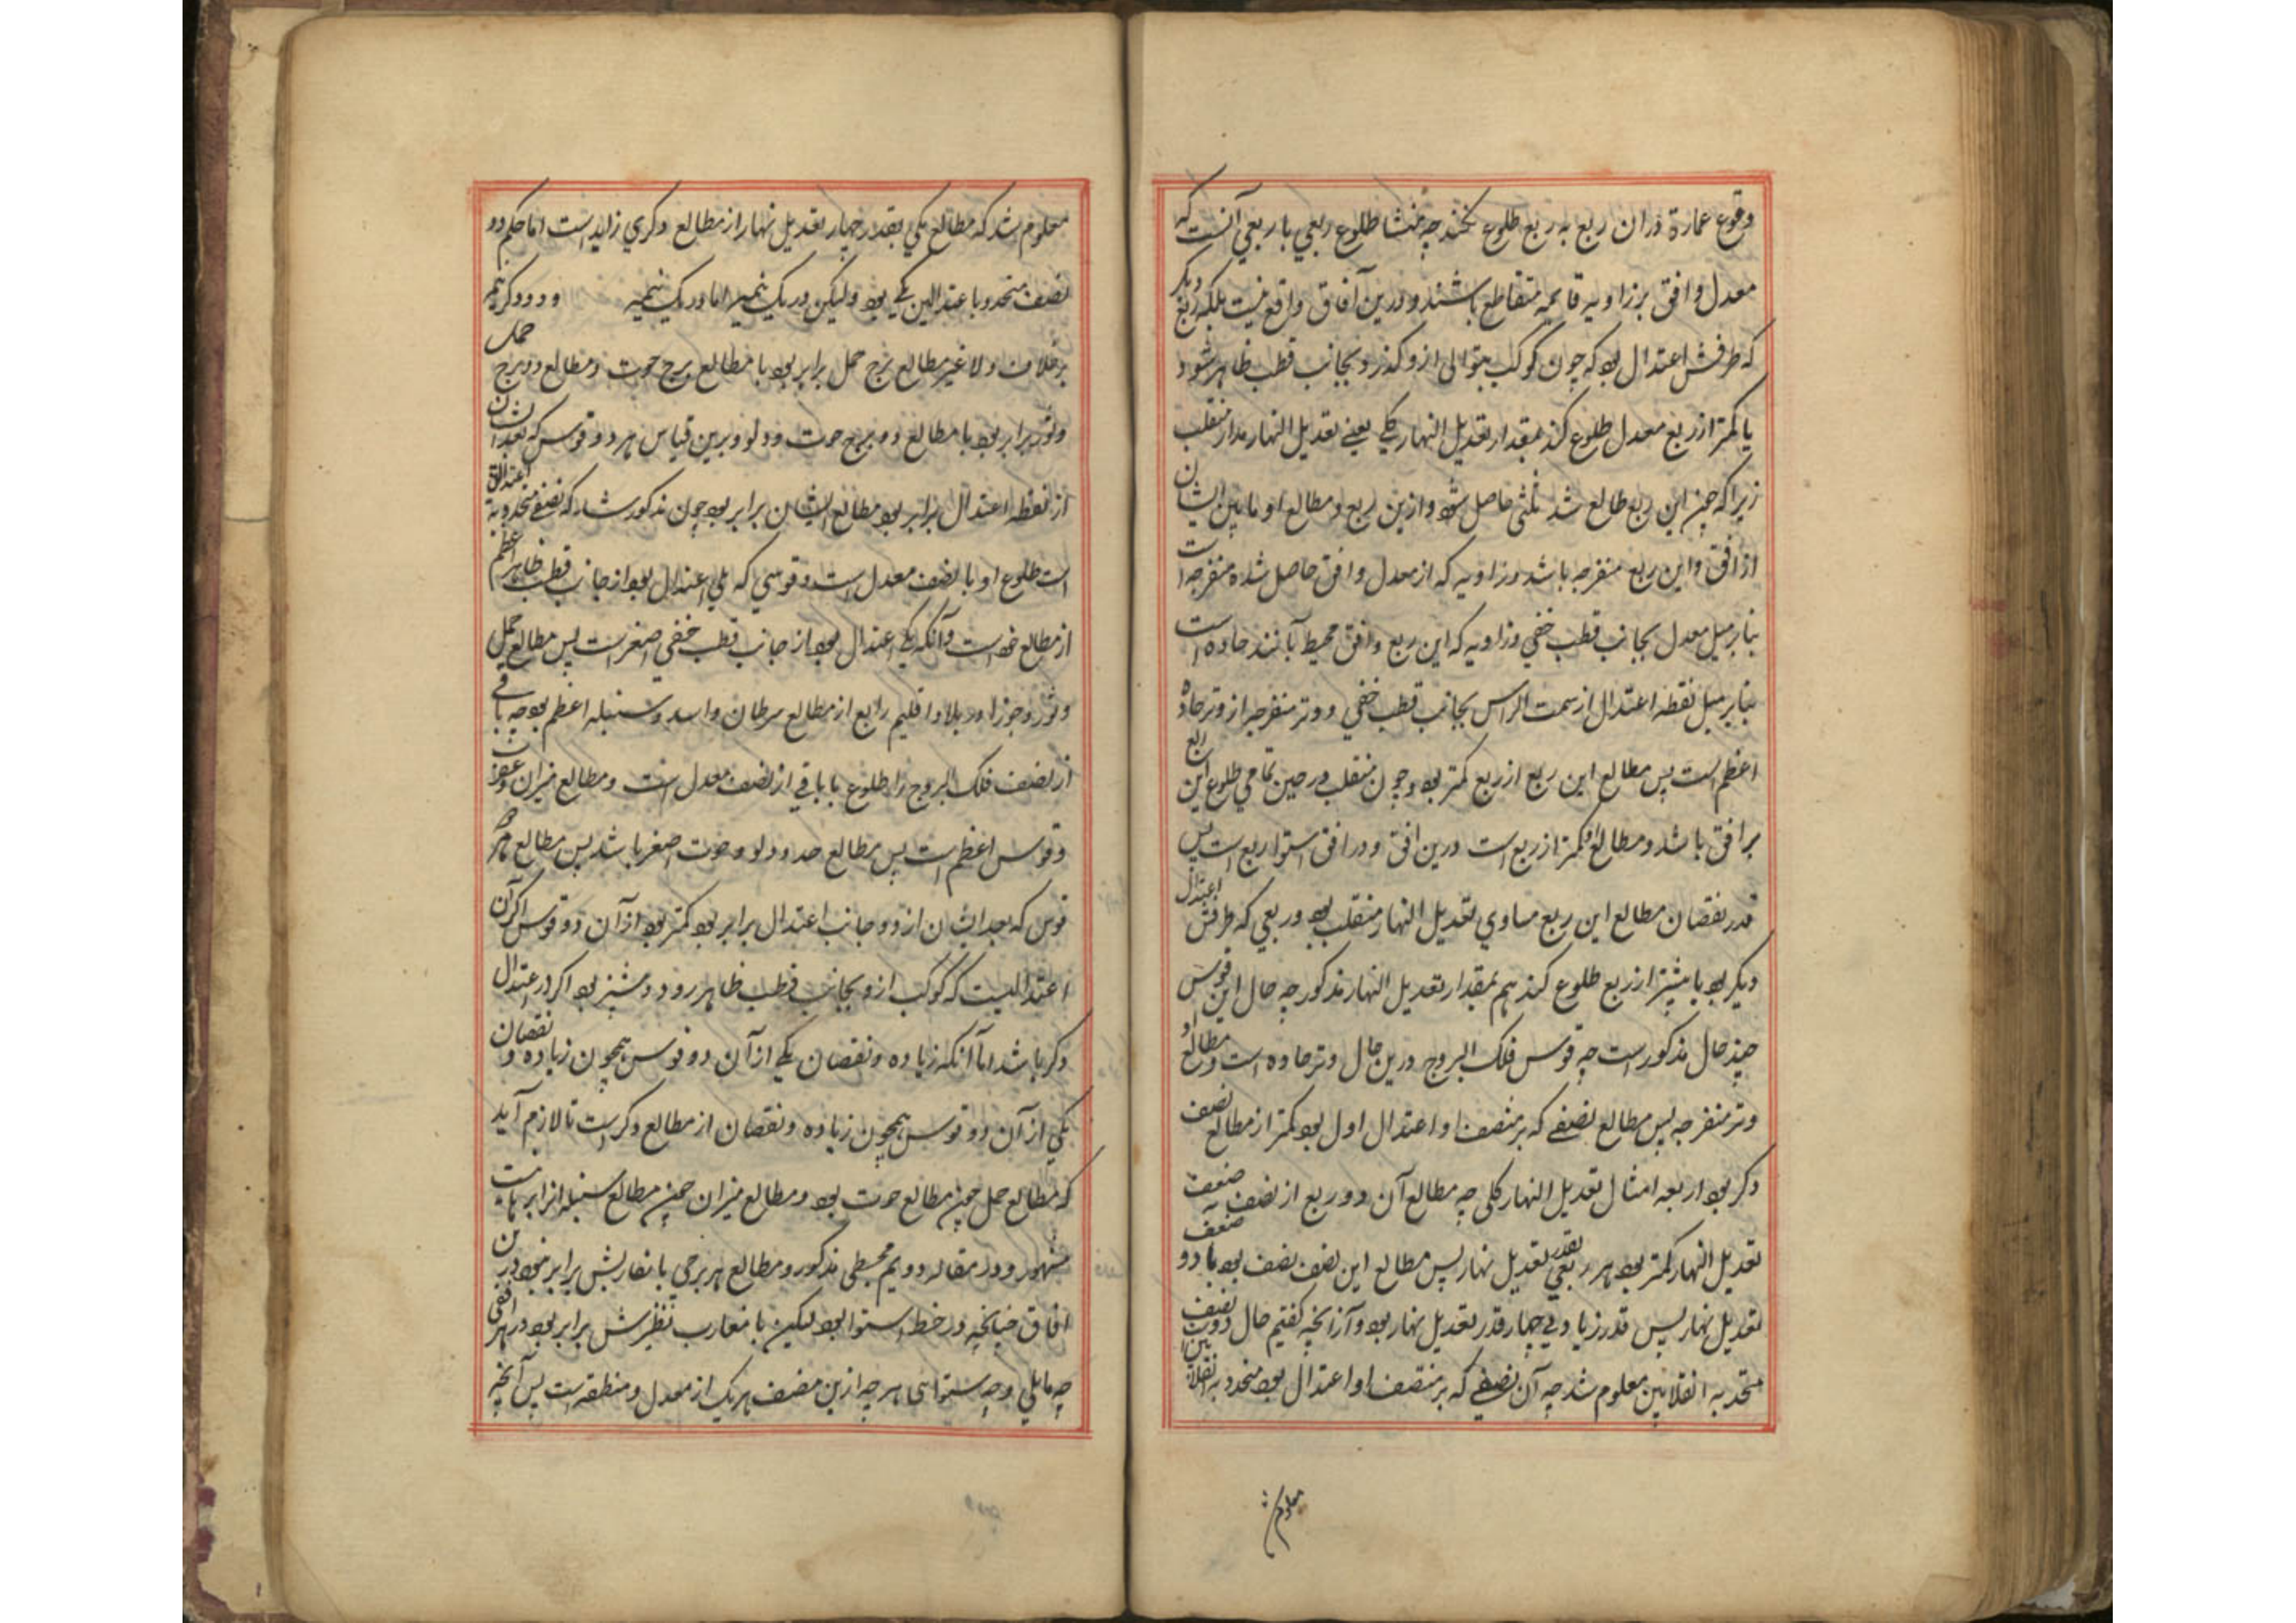 وقوع عمارة دران ربع به ربع طلوع نکند چه منشا طلوع ربعي با ربعي آنست که
معدل وافق بر زاویه قایمه متقاطع باشند و درین آفاق واقع نیست بلکه ربع دیکر
که طرفش اعتدال بود که چون کوکب بتوالی ازو کذرد بجانب قطب ظاهر شود
با کمتر از ربع معدل طلوع کند بمقدار تعدیل النهار کلي یعنے تعدیل النهار مدار منقلب
زیرا که چون این ربع طالع شد مثلثی حاصل شود ازین ربع و مطالع او مابین ایشان
از افق و این ربع منفرجه باشد و زاویه که از معدل وافق حاصل شده منفرجه است
بنابر میل معدل بجانب قطب خفي و زاویه که این ربع وافق محیط بآنند حاده است
بنابر میل نقطه اعتدال از سمت الراس بجانب قطب خفي و وتر منفرجه از وتر حاده
اعظم است پس مطالع این ربع از ربع کمتر بود و چون منقلب در حین تمامي طلوع این ربع
بر افق باشد و مطالع او کمتر از ربع است درین افق و در افق استوا ربع است پس
قدر نقصان مطالع این ربع مساوي تعدیل النهار منقلب بود و ربعي که طرفش اعتدال
دیکر بود با بیشتر از ربع طلوع کند هم بمقدار تعدیل النهار مذکور چه حال این قوس
ضد حال مذکور است چه قوس فلک البروج درین حال وتر حاده است و مطالع او
وتر منفرجه پس مطالع نصفے که بر منتصف او اعتدال اول بود کمتر از مطالع نصف
دکر بود اربعه امثال تعدیل النهار کلی چه مطالع آن دو ربع از نصف به ضعف
تعدیل النهار کمتر بود هر ربعي بقدر تعدیل نهار پس مطالع این نصف نصف بود با دو
تعدیل نهار پس قدر زیادتي چهار قدر تعدیل نهار بود و از آنچه کفتیم حال دو نصف
متحد به انقلابین معلوم شد چه آن نصفے که بر منتصف او اعتدال بود متحد به انقلابین
معلوم شد
معلوم شد که مطالع یکي بقدر چهار تعدیل نهار از مطالع دکري زاید است اما حکم دو
نصف متحدد با عتدالین یکے بود ولیکن در یک نیمه اما در یک نیمه و در دکر نیمه
بر خلاف ولا غیر مطالع برج حمل برابر بود با مطالع برج حوت و مطالع دو برج حمل
و ثور برابر بود با مطالع دو برج حوت و دلو و برین قیاس هر دو قوس که بعد ایشان
از نقطه اعتدال برابر بود مطالع ایشان برابر بود چون مذکور شد که نصفے متحدد به اعتدالین
است طلوع او با نصف معدل است و قوسي که یلي اعتدال بود از جانب قطب ظاهر اعظم
از مطالع خود است و آنکه یلي اعتدال بود از جانب قطب خفي اصغر است پس مطالع حمل
و ثور و جوزا در بلاد اقلیم رابع از مطالع سرطان و اسد و سنبله اعظم بود چه باقے
از نصف فلک البروج را طلوع با باقي از نصف معدل است و مطالع میزان و عقرب
و قوس اعظم است پس مطالع جدي و دلو و حوت اصغر باشد پس مطالع هر دو
قوس که بعد ایشان از دو جانب اعتدال برابر بود کمتر بود از آن دو قوس اکر آن
اعتدالیست که کوکب ازو بجانب قطب ظاهر رود و بیشتر بود اکر در اعتدال
دکر باشد اما آنکه زیاده و نقصان یکے از آن دو قوس همچون زیاده و نقصان
یکي از آن دو قوس همچون زیاده و نقصان از مطالع دکر است تا لازم آید
که مطالع حمل چون مطالع حوت بود و مطالع میزان چون مطالع سنبله از
مشهور و در مقاله دویم مجسطي مذکور و مطالع هر برجي با مغاربش برابر نبود درین
افاق چنانچه در خط استوا بود لیکن با مغارب نظیرش برابر بود در هر افقی
چه مایلي و چه استوائي هر چه ازین نصف هر یک از معدل و منطقه است پس آنچه